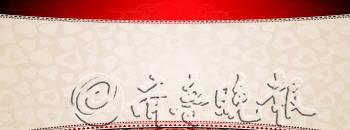 ©齐鲁晚报